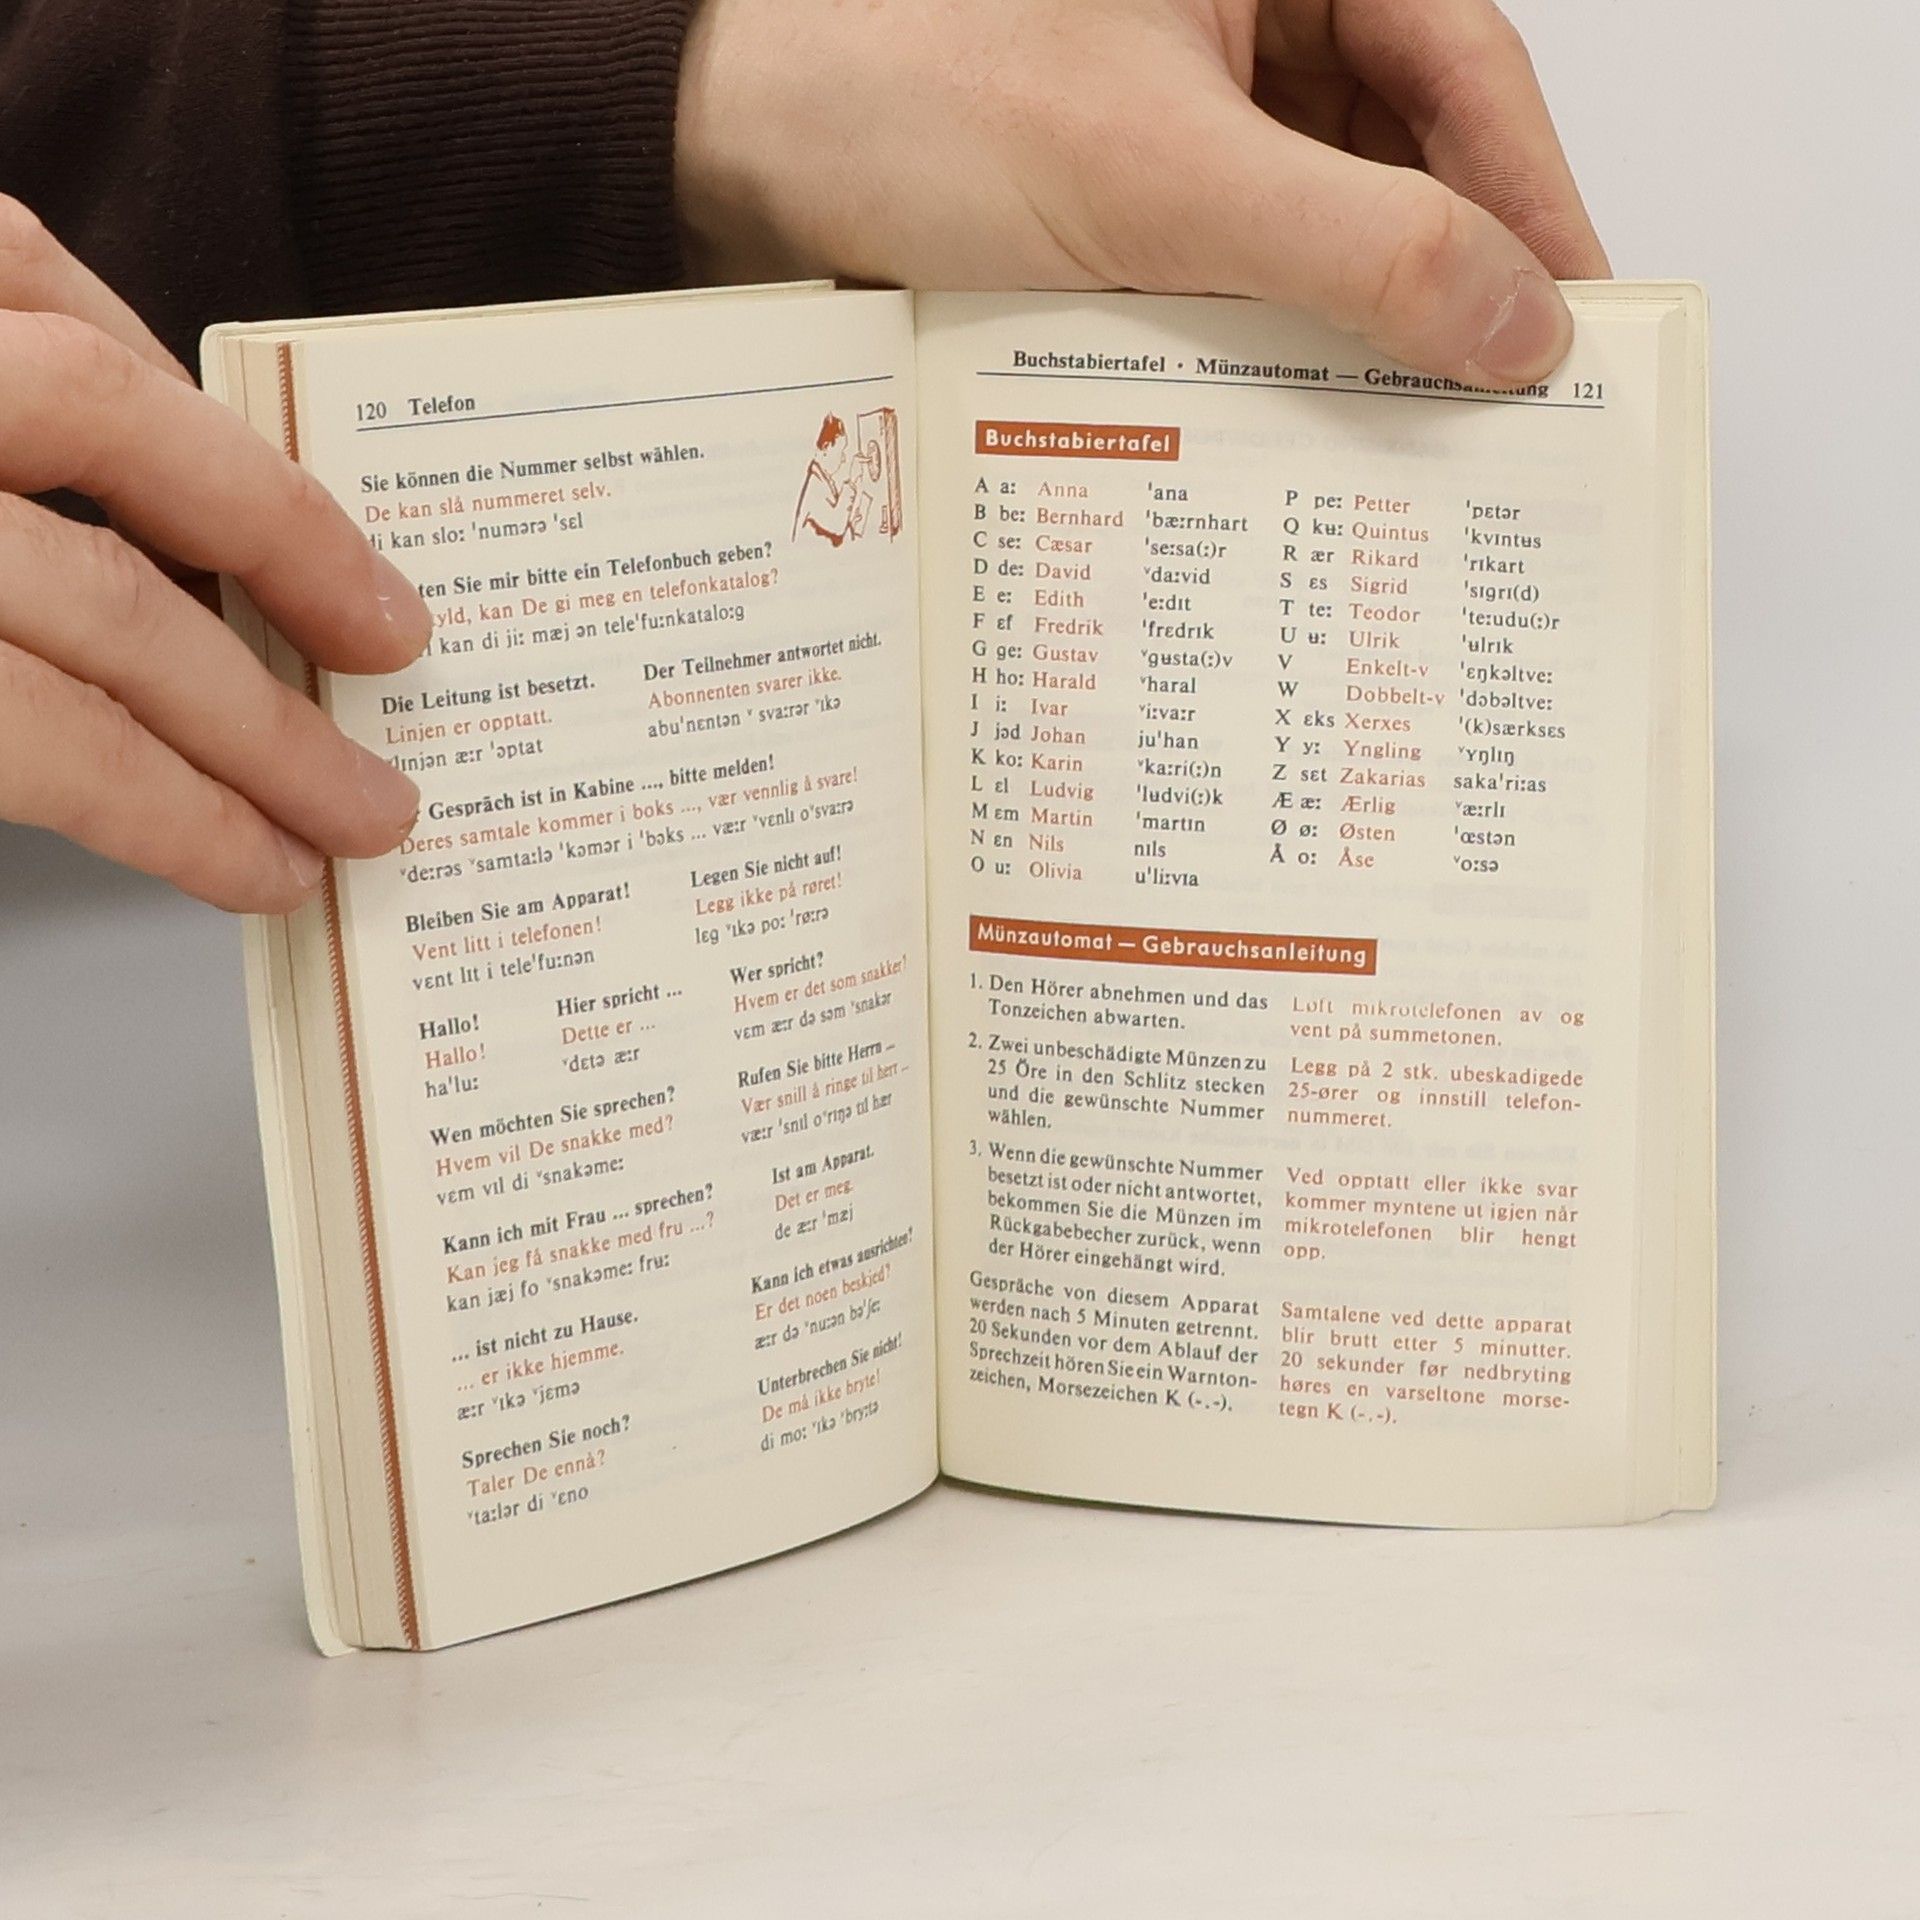 120 Telefon
Sie können die Nummer selbst wählen.
De kan slå nummeret selv.
di kan sloː ˈnumərə ˈsɛl
ten Sie mir bitte ein Telefonbuch geben?
kan De gi meg en telefonkatalog?
kan di jiː mæj ən teleˈfuːnkataloːg
Die Leitung ist besetzt.
Linjen er opptatt.
ˈlɪnjən æːr ˈɔptat
Der Teilnehmer antwortet nicht.
Abonnenten svarer ikke.
abuˈnɛntən ˅svaːrər ˅ɪkə
Gespräch ist in Kabine ..., bitte melden!
Deres samtale kommer i boks ..., vær vennlig å svare!
˅deːrəs ˅samtaːlə ˈkɔmər i ˈbɔks ... væːr ˅vɛnlɪ o˅svaːrə
Bleiben Sie am Apparat!
Vent litt i telefonen!
vɛnt lɪt i teleˈfuːnən
Legen Sie nicht auf!
Legg ikke på røret!
lɛg ˅ɪkə poː ˈrøːrə
Hallo!
Hallo!
haˈluː
Hier spricht ...
Dette er ...
˅dɛtə æːr
Wer spricht?
Hvem er det som snakker?
vɛm æːr də sɔm ˅snakər
Wen möchten Sie sprechen?
Hvem vil De snakke med?
vɛm vɪl di ˅snakəmeː
Rufen Sie bitte Herrn –
Vær snill å ringe til herr –
væːr ˈsnɪl o˅rɪŋə tɪl hær
Kann ich mit Frau ... sprechen?
Kan jeg få snakke med fru ...?
kan jæj fo ˅snakəmeː fruː
Ist am Apparat.
Det er meg.
de æːr ˈmæj
... ist nicht zu Hause.
... er ikke hjemme.
æːr ˅ɪkə ˅jɛmə
Kann ich etwas ausrichten?
Er det noen beskjed?
æːr də ˅nuːən bəˈʃeː
Sprechen Sie noch?
Taler De ennå?
˅taːlər di ˅ɛno
Unterbrechen Sie nicht!
De må ikke bryte!
di moː ˅ɪkə ˅bryːtə
Buchstabiertafel · Münzautomat — 121
Buchstabiertafel
A aː Anna ˈana
B beː Bernhard ˈbæːrnhart
C seː Cæsar ˈseːsa(ː)r
D deː David ˅daːvid
E eː Edith ˈeːdɪt
F ɛf Fredrik ˈfrɛdrɪk
G geː Gustav ˅gʉsta(ː)v
H hoː Harald ˅haral
I iː Ivar ˅iːvaːr
J jɔd Johan juˈhan
K koː Karin ˅kaːri(ː)n
L ɛl Ludvig ˈlʉdvi(ː)k
M ɛm Martin ˈmartɪn
N ɛn Nils nɪls
O uː Olivia uˈliːvɪa
P peː Petter ˈpɛtər
Q kʉː Quintus ˈkvɪntʉs
R ær Rikard ˈrɪkart
S ɛs Sigrid ˈsɪgrɪ(d)
T teː Teodor ˈteːudu(ː)r
U ʉː Ulrik ˈulrɪk
V Enkelt-v ˈɛŋkəltveː
W Dobbelt-v ˈdɔbəltveː
X ɛks Xerxes ˈ(k)særksɛs
Y yː Yngling ˅ʏŋlɪŋ
Z sɛt Zakarias sakaˈriːas
Æ æː Ærlig ˅æːrlɪ
Ø øː Østen ˈœstən
Å oː Åse ˅oːsə
Münzautomat — Gebrauchsanleitung
1. Den Hörer abnehmen und das
Tonzeichen abwarten.
Løft mikrotelefonen av og
vent på summetonen.
2. Zwei unbeschädigte Münzen zu
25 Öre in den Schlitz stecken
und die gewünschte Nummer
wählen.
Legg på 2 stk. ubeskadigede
25-ører og innstill telefon-
nummeret.
3. Wenn die gewünschte Nummer
besetzt ist oder nicht antwortet,
bekommen Sie die Münzen im
Rückgabebecher zurück, wenn
der Hörer eingehängt wird.
Ved opptatt eller ikke svar
kommer myntene ut igjen når
mikrotelefonen blir hengt
opp.
Gespräche von diesem Apparat
werden nach 5 Minuten getrennt.
20 Sekunden vor dem Ablauf der
Sprechzeit hören Sie ein Warnton-
zeichen, Morsezeichen K (-.-).
Samtalene ved dette apparat
blir brutt etter 5 minutter.
20 sekunder før nedbryting
høres en varseltone morse-
tegn K (-.-).